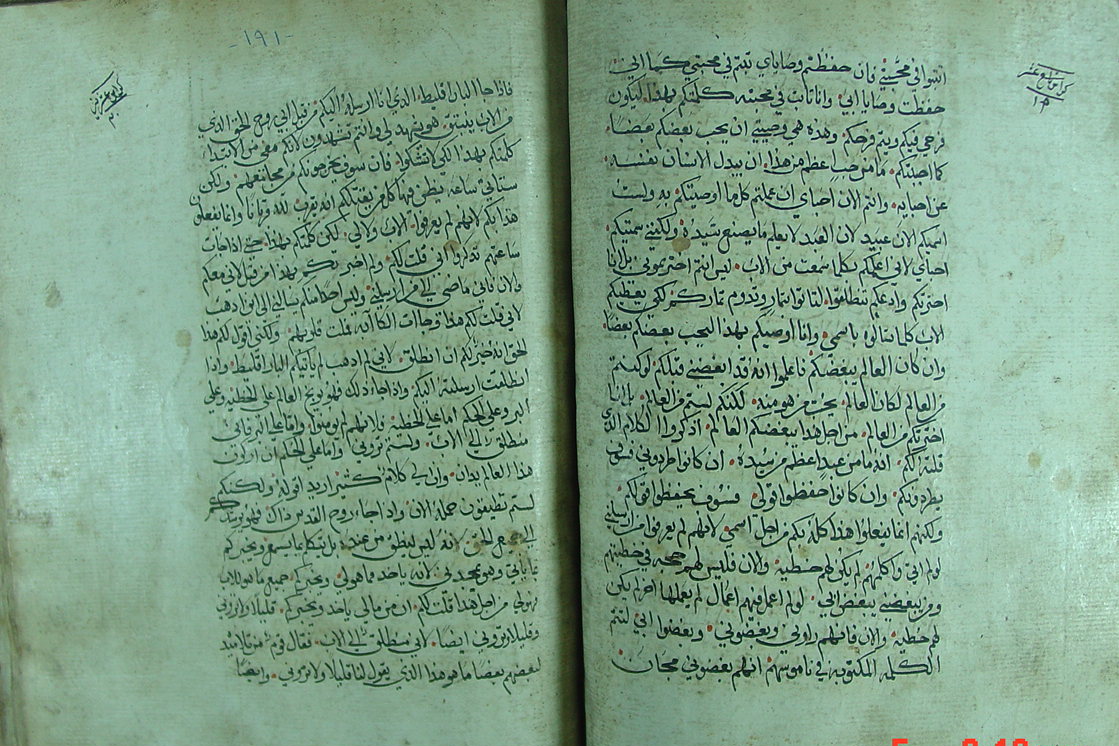 اثبتوا في محبتي فان حفظتم وصاياي تبتم في محبتي كما اني
حفظت وصايا ابي وانا ثابت في محبته كلمتكم بهذا ليكون
فرحي فيكم ويتم فرحكم وهذه هي وصيتي ان يحب بعضكم بعضا
كما احببتكم ما من حب اعظم من هذا ان يبدل الانسان نفسه
عن احبايه وانتم الان احباي ان عملتم كل ما اوصيتكم به ولست
اسميكم الان عبيد لان العبد لا يعلم ما يصنع سيده ولكني سميتكم
احباي لاني اعلمكم بكلما سمعت من الاب ليس انتم اخترتموني بل انا
اخترتكم وادعكم تنطلقوا لتاتوا بثمار وتدوم ثماركم لكي يعطيكم
الاب كلما تسالوه باسمي وانا اوصيكم بهذا ليحب بعضكم بعضا
وان كان العالم يبغضكم فاعلموا انه قد ابغضني قبلكم لو كنتم
من العالم لكان العالم يحب من هو منه لكنكم لستم من العالم بل انا
اخترتكم من العالم من اجل هذا يبغضكم العالم اذكروا الكلام الذي
قلته لكم انه ما من عبد اعظم من سيده ان كانوا طردوني فسوف
يطردونكم وان كانوا حفظوا قولي فسوف يحفظوا قولكم
ولكنهم انما يفعلوا هذا كله بكم من اجل اسمي لانهم لم يعرفوا من ارسلني
لو لم اتي واكلمهم لم يكن لهم خطية والان فليس لهم حجة في خطيتهم
ومن يبغضني يبغض ابي لو لم اعمل فيهم اعمال لم يعملها اخر لم يكن
لهم خطية والان فانهم راوني وبغضوني وبغضوا ابي لتتم
الكلمه المكتوبة في ناموسهم انهم بغضوني مجان
-١٩١-
فاذا جا البارا قليط الذي انا ارسله اليكم من قبل ابي روح الحق الذي
من الاب ينبثق هو يشهد لي وانتم تشهدون لانكم معي من الابتدا
كلمتكم بهذا لكي لا تشكوا فان سوف يخرجونكم من مجامعهم ولكن
ستاتي ساعه يظن فيها كل من يقتلكم انه يقرب لله قربانا وانما يفعلون
هذا بكم لانهم لم يعرفوا الاب ولا لي لكن كلمتكم بهذا حتى اذا جات
ساعتهم تذكروا اني قلت لكم ولم اخبركم بهذا من قبل لاني معكم
والان فاني ماضي الى من ارسلني وليس احد منكم يسالني الى اين اذهب
لاني قلت لكم هذا وجات الكابه فملت قلوبكم ولكني اقول لكم هذا
الحق انه خير لكم ان انطلق لاني لم اذهب لم ياتيكم البارا قليط واذا
انطلقت ارسلته اليكم واذا جا ذلك فهو يوبخ العالم على الخطية وعلى
البر وعلى الحكم اما على الخطية فلانهم لم يومنوا واما على البر فاني
منطلق الى الاب ولستم تروني واما على الحكم ان اركون
هذا العالم يدان وان لي كلام كثير اريد اقوله ولكنكم
لستم تطيقون حمله الان واذا جا روح القدس ذاك فهو يرشدكم
الى جميع الحق لانه ليس ينطق من عنده بل يتكلم بما يسمع ويخبركم
بما ياتي وهو يمجدني لانه ياخذ مما هو لي ويخبركم جميع ما هو للاب
فهو لي من اجل هذا قلت لكم ان من مالي ياخذ ويخبركم قليلا ولا تروني
وقليلا وتروني ايضا اني منطلق الى الاب فقال قوم من تلاميذه
لبعضهم بعضا ما هو هذا الذي يقول لنا قليلا ولا تروني وايضا